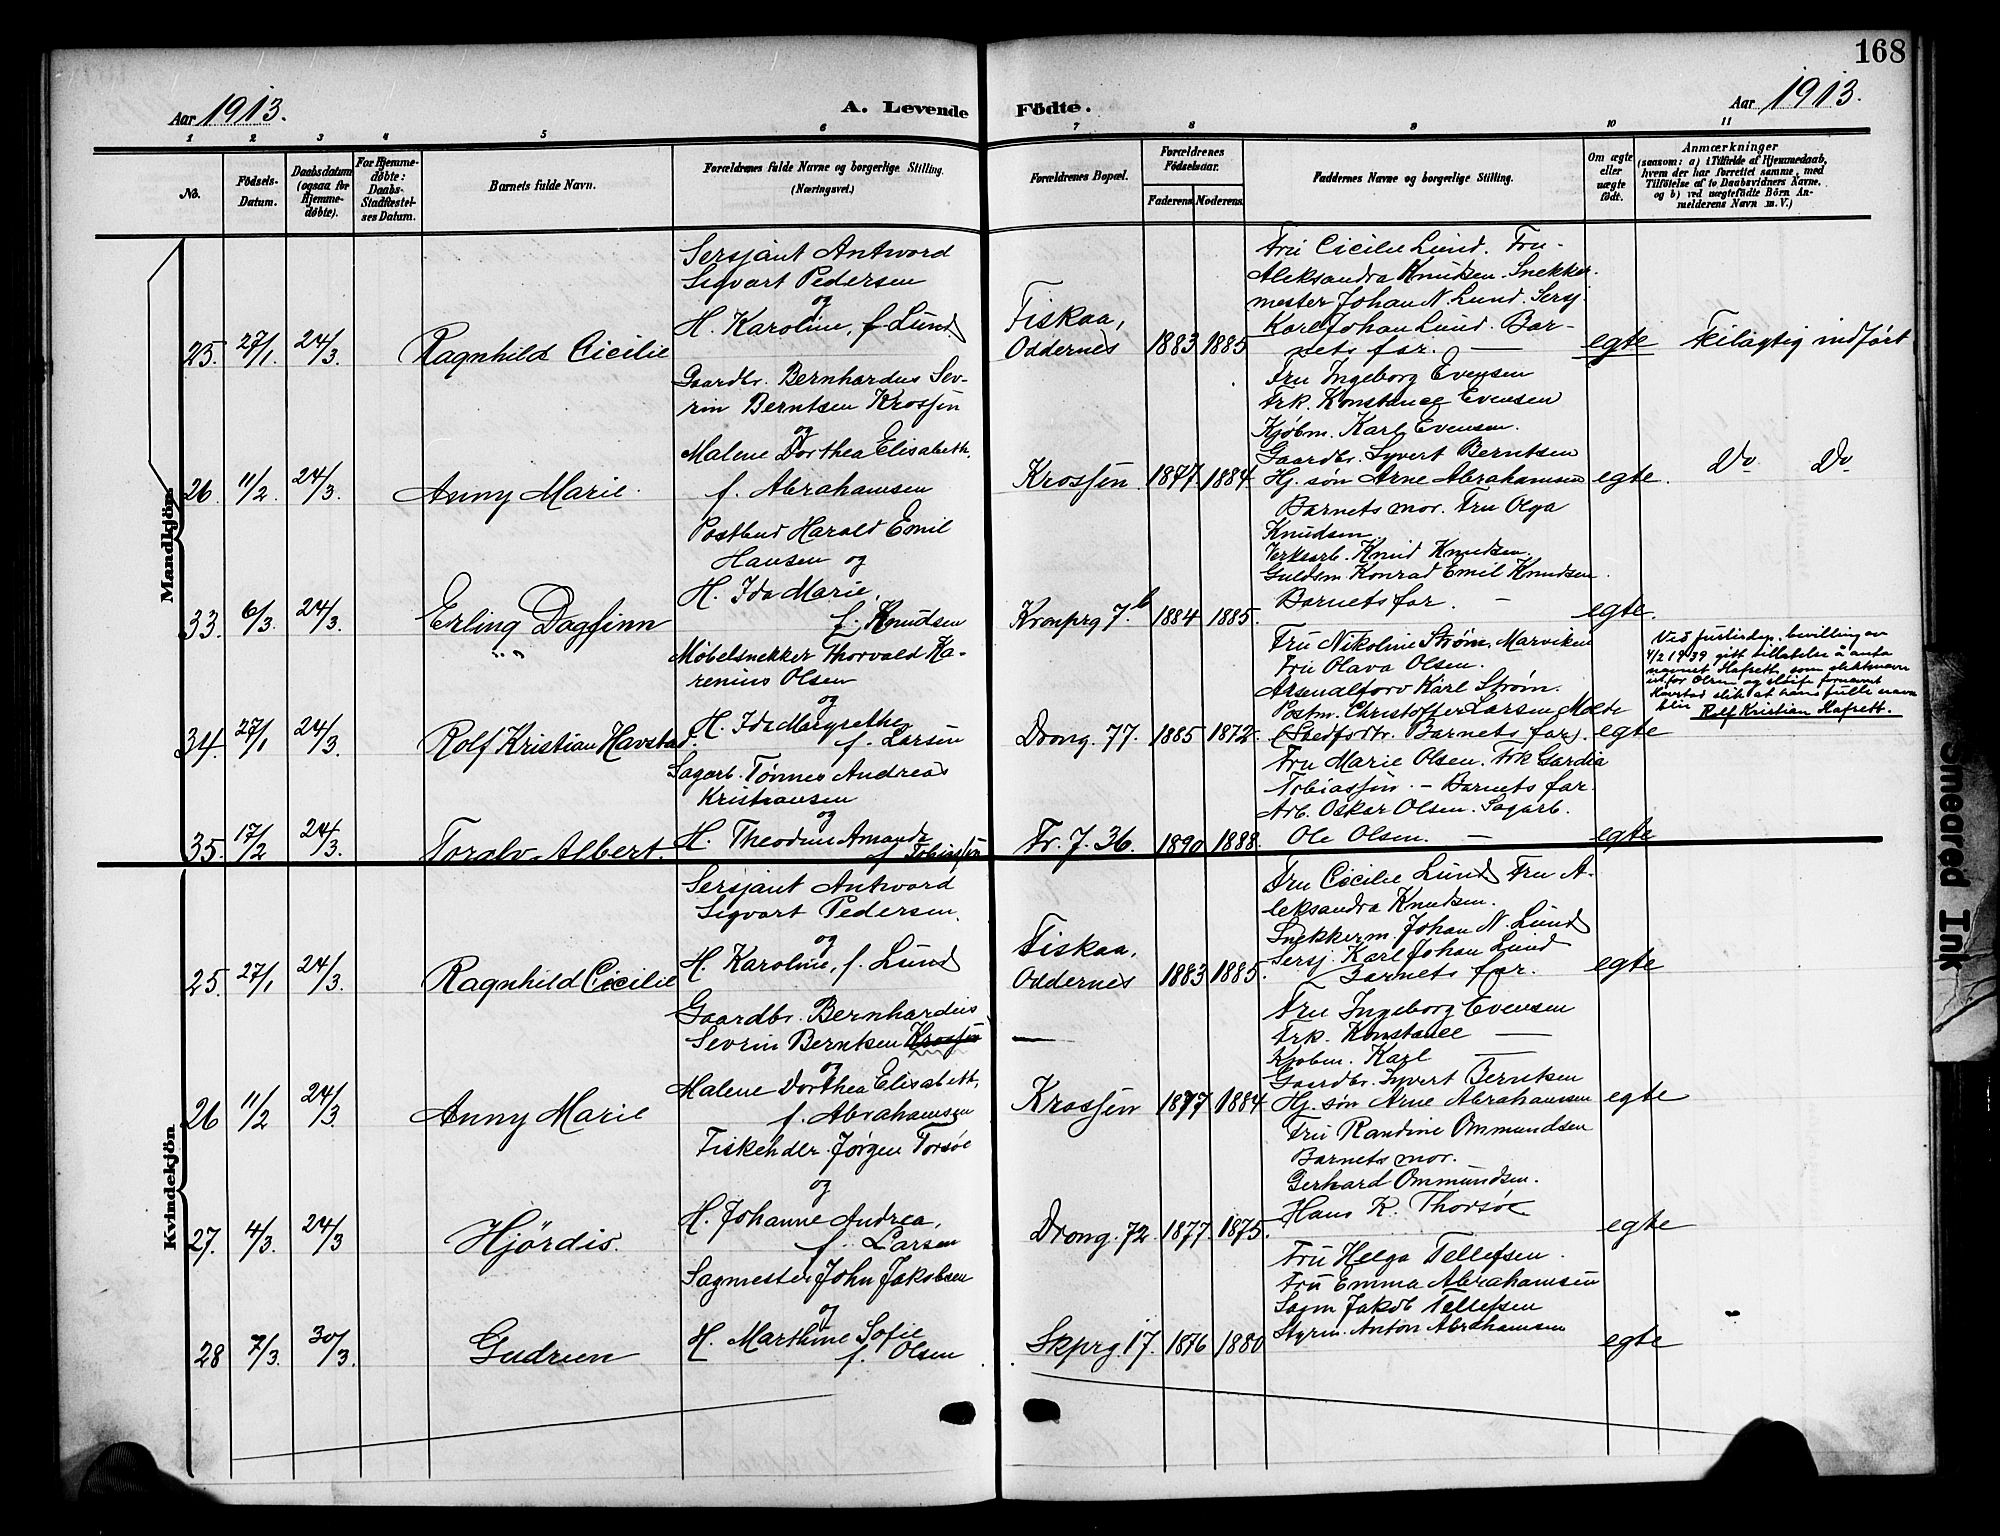 168
Aar 1913.
A. Levende Födte.
Aar 1913.
1 2 3 4 5 6 7 8 9 10 11
No.
Födsels-
Datum.
Daabsdatum
(ogsaa for
Hjemme-
døbte).
For Hjemme-
døbte:
Daabs-
Stadfæstel-
ses Datum.
Barnets fulde Navn.
Forældrenes fulde Navne og borgerlige Stilling.
(Næringsvei.)
Forældrenes Bopæl.
Forældrenes
Födselsaar.
Faderens Moderens
Faddernes Navne og borgerlige Stilling.
Om ægte
eller
uægte
født.
Anmærkninger
(saasom: a) i Tilfælde af Hjemmedaab,
hvem der har forrettet samme, med
Tilföielse af to Daabsvidners Navne,
og b) ved uægtefödte Börn An-
melderens Navn m. V.)
Mandkjön
25. 27/1 24/3. Ragnhild Cicilie
Sersjant Antword
Sigvart Pedersen
og
H. Karoline, f. Lund
Fiskaa,
Oddernes 1883 1885
Fru Cicilie Lund. Fru
Aleksandra Knudsen. Snekker-
mester Johan N. Lund. Sersj.
Karl Johan Lund. Bar-
nets far. —
egte Feilagtig indført
26. 11/2 24/3. Anny Marie.
Gaardbr. Bernhardus Sev-
rin Berntsen Krossen
og
Malene Dorthea Elisabeth
f. Abrahamsen
Krossen 1877 1884
Fru Ingeborg Evensen
Frk. Konstance Evensen
Kjøbm. Karl Evensen.
Gaardbr. Syvert Berntsen
Hj. søn Arne Abrahamsen
egte. Do Do
33. 6/3 24/3. Erling Dagfinn
Postbud Harald Emil
Hansen og
H. Ida Marie,
f. Knudsen
Kronprg 7b 1884 1885.
Barnets mor. Fru Olga
Knudsen
Verksarb. Knud Knudsen.
Guldsm. Konrad Emil Knudsen.
Barnets far. —
egte.
34. 27/1 24/3. Rolf Kristian Havstad.
Møbelsnekker Thorvald Ka-
renius Olsen
og
H. Ida Margrethe
f. Larsen
Drong. 77. 1885 1872.
Fru Nikoline Strøm. Marviken
Fru Olava Olsen.
Arsenalforv Karl Strøm.
Postm. Christoffer Larsen Molde
(Stedfortr. Barnets far).
egte
Ved justisdep. bevilling av
4/2 1939 gitt tillatelse å anta
navnet Hafsett som slektsnavn
istfor Olsen og sløife fornavnet
Havstad slik at hans fulle navn
blir Rolf Kristian Hafsett.
35. 17/2 24/3. Toralv Albert.
Sagarb. Tønnes Andreas
Kristiansen
og
H. Theodine Amanda
f. Tobiassen
Fr. J. 36. 1890 1888.
Fru Marie Olsen. Frk Gardia
Tobiassen. — Barnets far.
Arb. Oskar Olsen. Sagarb.
Ole Olsen. —
egte
Kvindekjön
25. 27/1 24/3. Ragnhild Cicilie
Sersjant Antword
Sigvart Pedersen.
og
H. Karoline, f. Lund
Fiskaa,
Oddernes 1883 1885.
Fru Cicilie Lund Fru A-
leksandra Knudsen.
Snekkerm. Johan N. Lund
Sersj. Karl Johan Lund
Barnets far.
egte
26 11/2 24/3. Anny Marie
Gaardbr. Bernhardus
Sevrin Berntsen Krossen
og
Malene Dorthea Elisabeth,
f. Abrahamsen
—
Krossen 1877 1884
Fru Ingeborg Evensen
Frk. Konstance —
Kjøbm. Karl —
Gaardbr. Syvert Berntsen
Hj. søn Arne Abrahamsen
egte
27. 4/3. 24/3 Hjördis.
Fiskehdlr. Jørgen Torsøe
og
H. Johanne Andrea,
f. Larsen
Drong. 72. 1877. 1875.
Fru Randine Ommundsen
Barnets mor.
Gerhard Ommundsen.
Hans K. Thorsøe
egte
28 7/3. 30/3. Gudrun
Sagmester John Jakobsen
og
H. Marthine Sofie
f. Olsen
Skprg. 17. 1876 1880
Fru Helga Tellefsen.
Fru Emma Abrahamsen
Sagm Jakob Tellefsen
Styrm. Anton Abrahamsen
egte
Smeared Ink